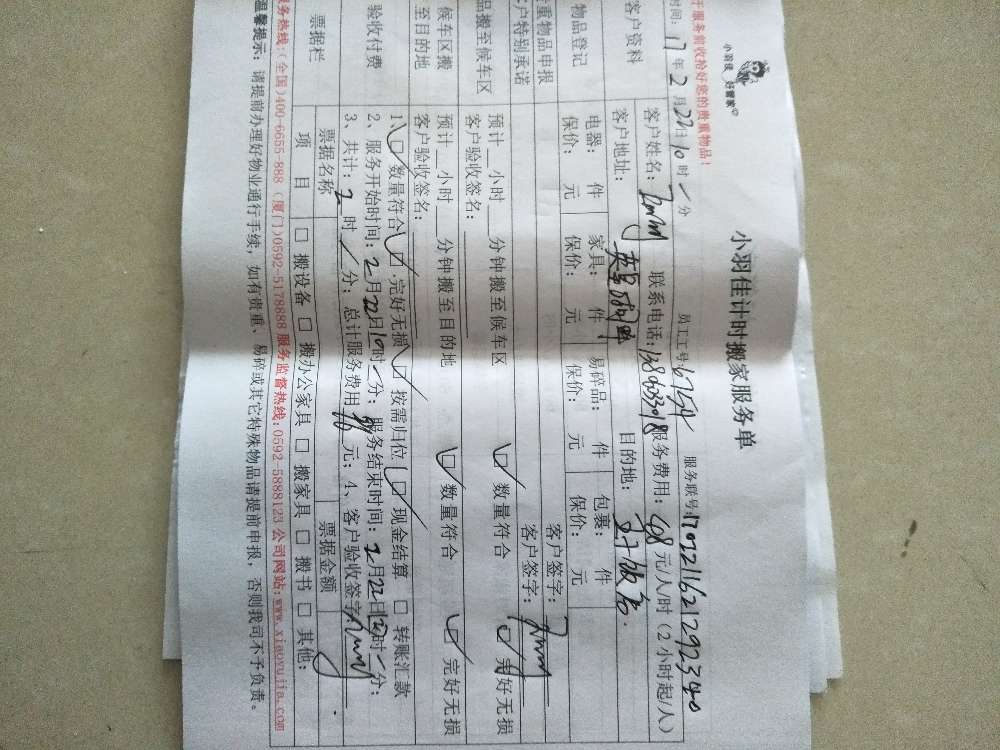 小羽佳 好管家
小羽佳计时搬家服务单
开服务前收拾好您的贵重物品!
时间: 17年2月22日10时/分 员工号: 6754 服务联号: 1702211621292340
客户资料
客户姓名: 联系电话: 服务费用: 68元/人/时(2小时起/人)
客户地址: 目的地:
物品登记
电器: 件 家具: 件 易碎品: 件 包裹: 件
保价: 元 保价: 元 保价: 元 保价: 元
重物品申报 客户签字:
客户特别承诺 客户签字:
品搬至候车区
预计 小时 分钟搬至候车区 数量符合 完好无损
客户验收签名:
候车区搬至目的地
预计 小时 分钟搬至目的地 数量符合 完好无损
客户验收签名:
验收付费
1、数量符合 完好无损 按需归位 现金结算 转账汇款
2、服务开始时间: 2月22日10时/分; 服务结束时间: 2月22日 时/分;
3、共计: 2时/分; 总计服务费用 元; 4、客户验收签字
票据栏
票据名称 票据金额
项目 搬设备 搬办公家具 搬家具 搬书 其他:
服务热线:(全国)400-6655-888 (厦门)0592-5178888 服务监督热线:0592-5888123 公司网站:www.xiaoyujia.com
温馨提示: 请提前办理好物业通行手续, 如有贵重、易碎或其它特殊物品请提前申报, 否则我司不予负责。